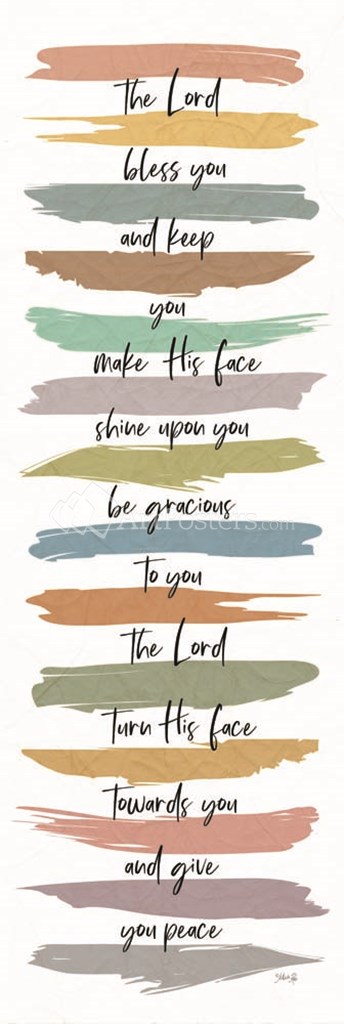 The Lord
bless you
and keep
you
make His face
shine upon you
be gracious
ArtPosters.com
To you
The Lord
Turn His face
Towards you
and give
you peace